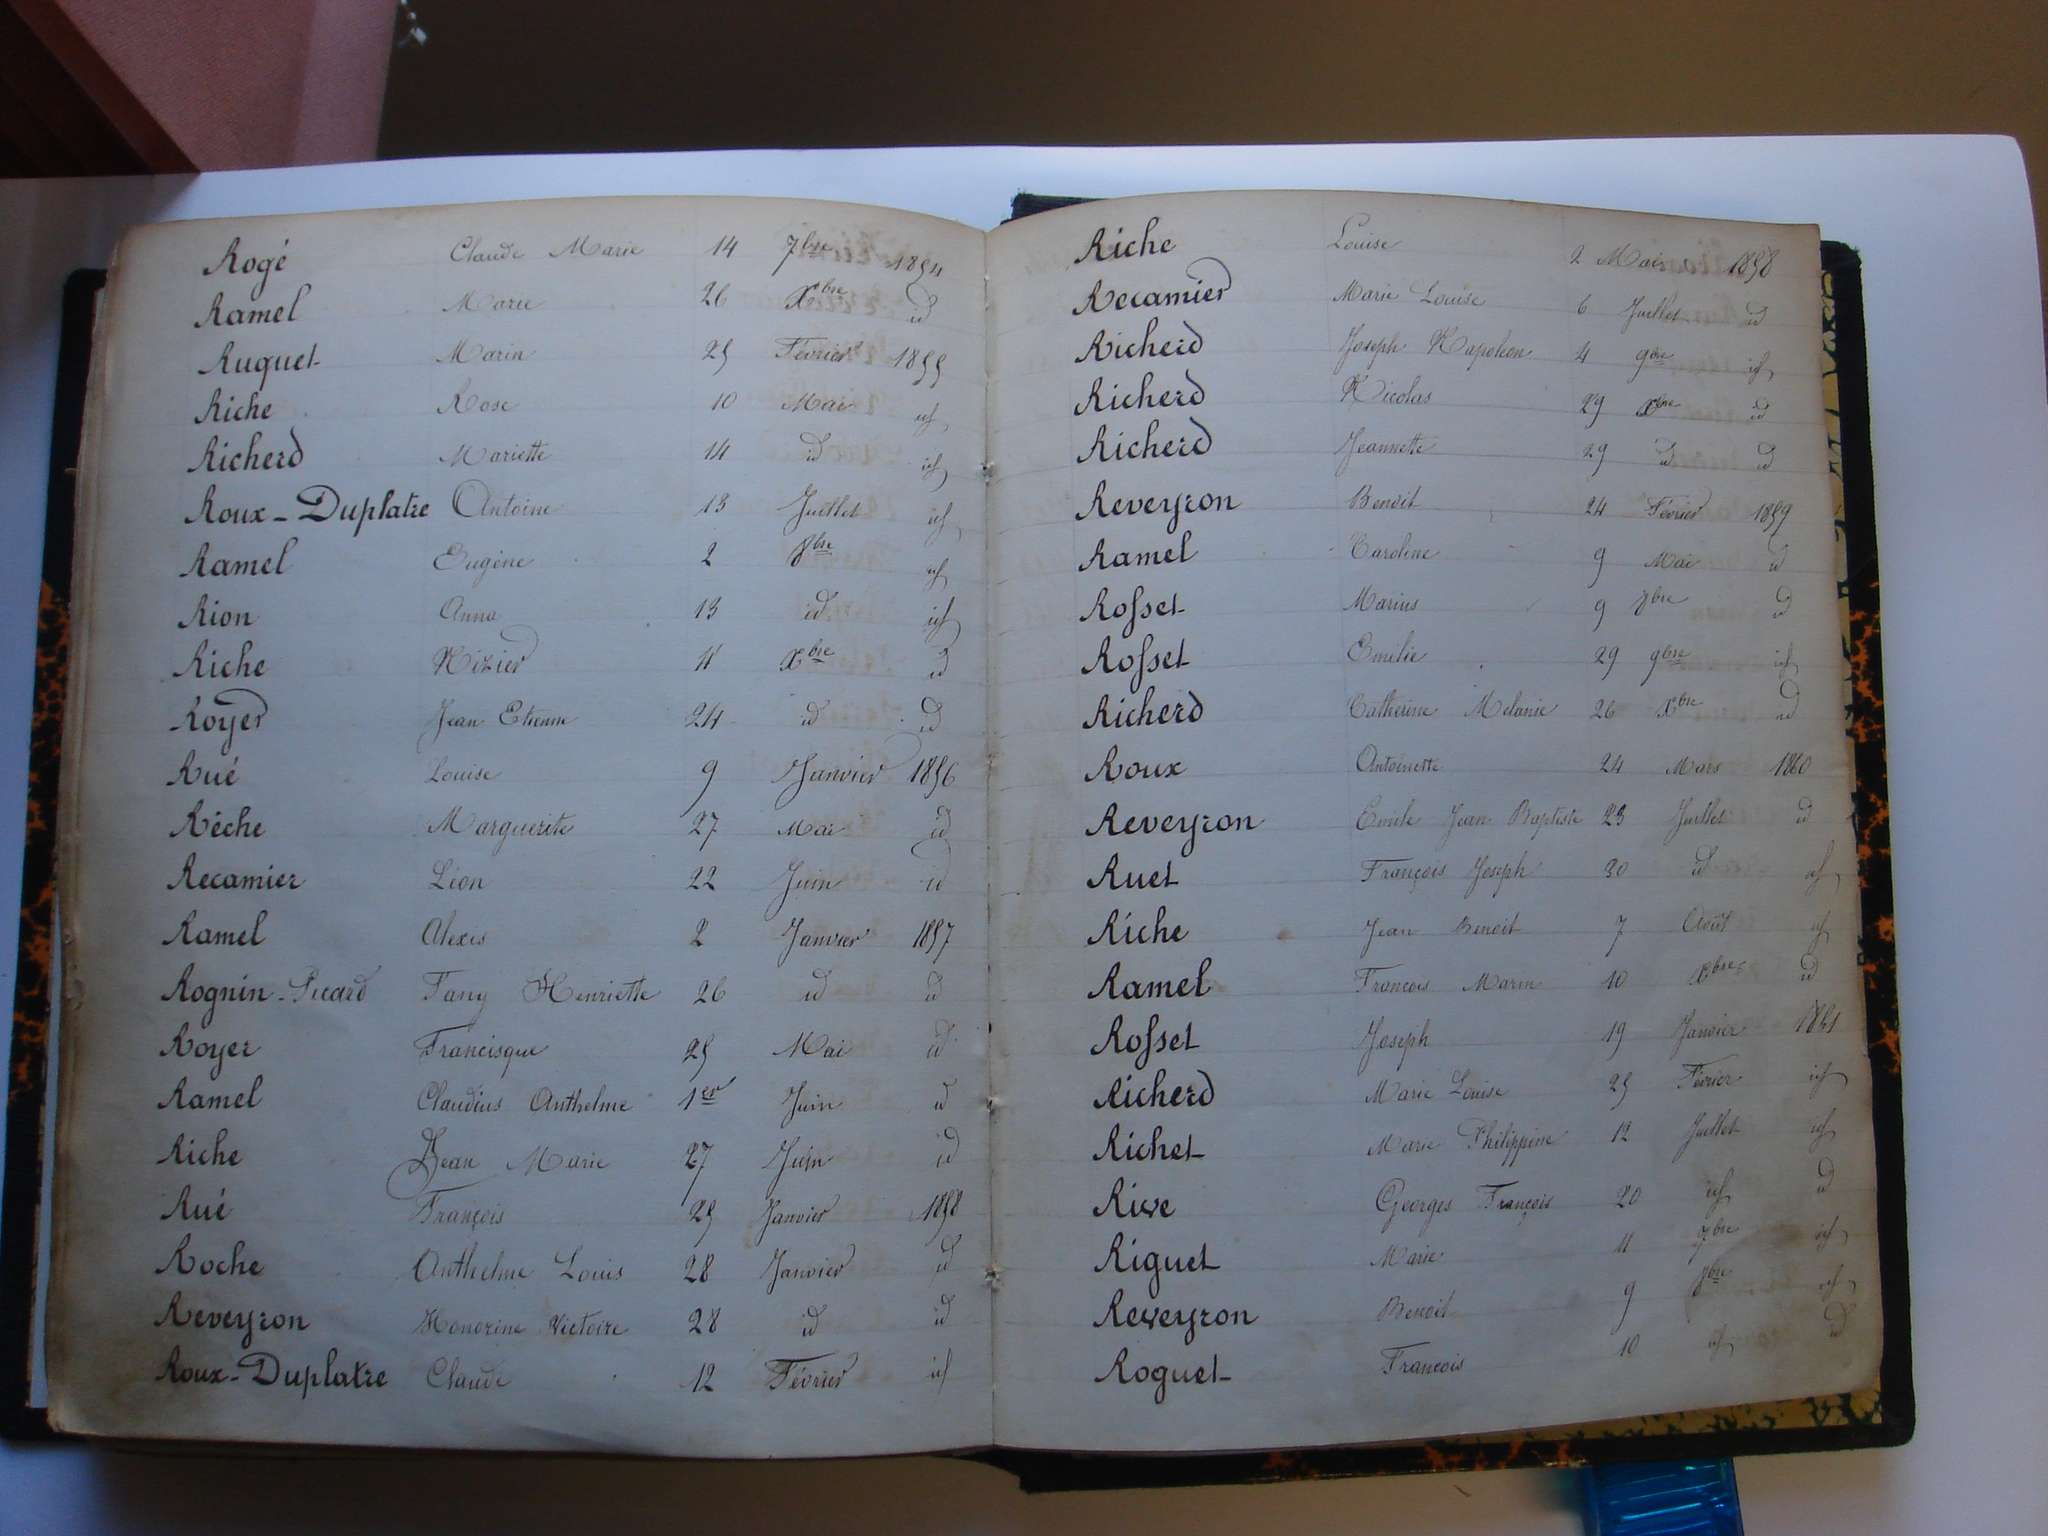 Rogé Claude Marie 14 7bre 1854
Ramel Marie 26 Xbre id
Ruguet Marin 25 Février 1855
Riche Rose 10 Mai id
Richerd Mariette 14 id id
Roux-Duplatre Antoine 13 Juillet id
Ramel Eugène 2 8bre id
Rion Anna 13 id id
Riche Nizier 11 Xbre id
Royer Jean Etienne 24 id id
Rué Louise 9 Janvier 1856
Rèche Marguerite 27 Mai id
Recamier Léon 22 Juin id
Ramel Alexis 2 Janvier 1857
Rognin-Picard Fany Henriette 26 id id
Royer Francisque 25 Mai id
Ramel Claudius Anthelme 1er Juin id
Riche Jean Marie 27 Juin id
Rué François 25 Janvier 1858
Roche Anthelme Louis 28 Janvier id
Reveyron Honorine Victoire 28 id id
Roux-Duplatre Claude 12 Février id
Riche Louise 2 Mai 1858
Recamier Marie Louise 6 Juillet id
Richerd Joseph Napoleon 4 9bre id
Richerd Nicolas 29 Xbre id
Richerd Jeannette 29 id id
Reveyron Benoit 24 Février 1859
Ramel Caroline 9 Mai id
Rosset Marius 9 8bre id
Rosset Emilie 29 9bre id
Richerd Catherine Melanie 26 Xbre id
Roux Antoinette 24 Mars 1860
Reveyron Emile Jean Baptiste 23 Juillet id
Ruet François Joseph 30 id id
Riche Jean Benoit 7 Août id
Ramel Francois Marin 10 Xbre id
Rosset Joseph 19 Janvier
Richerd Marie Louise 25 Février id
Richet Marie Philippine 12 Juillet id
Rive Georges François 20 id id
Riguet Marie 11 7bre id
Reveyron Benoit 9 8bre id
Roguet Francois 10 id id